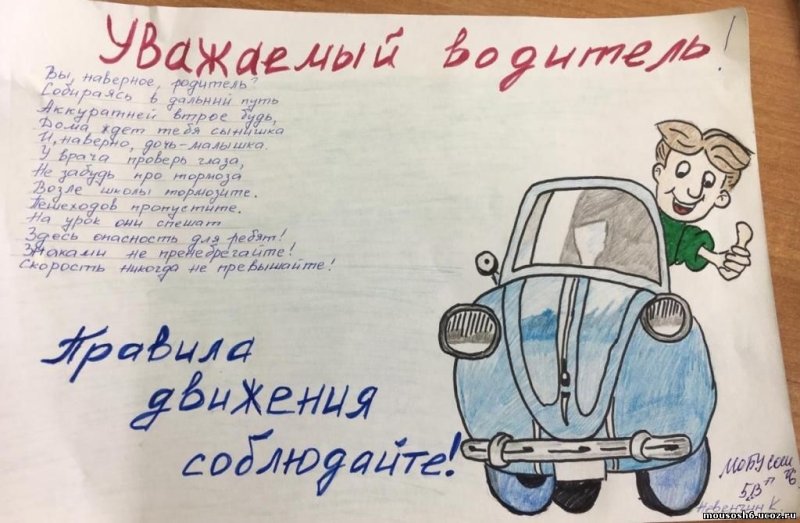 Уважаемый водитель!
Вы, наверное, родитель?
Собираясь в дальний путь
Аккуратней втрое будь,
Дома ждет тебя сынишка
И, наверно, дочь-малышка.
У врача проверь глаза,
Не забудь про тормоза
Возле школы тормозите.
Пешеходов пропустите.
На урок они спешат
Здесь опасность для ребят!
Знаками не пренебрегайте!
Скорость никогда не превышайте!
Правила
движения
соблюдайте!
МОБУ СОШ №6
5 "В"
Невензин К.
mousosh6.ucoz.ru